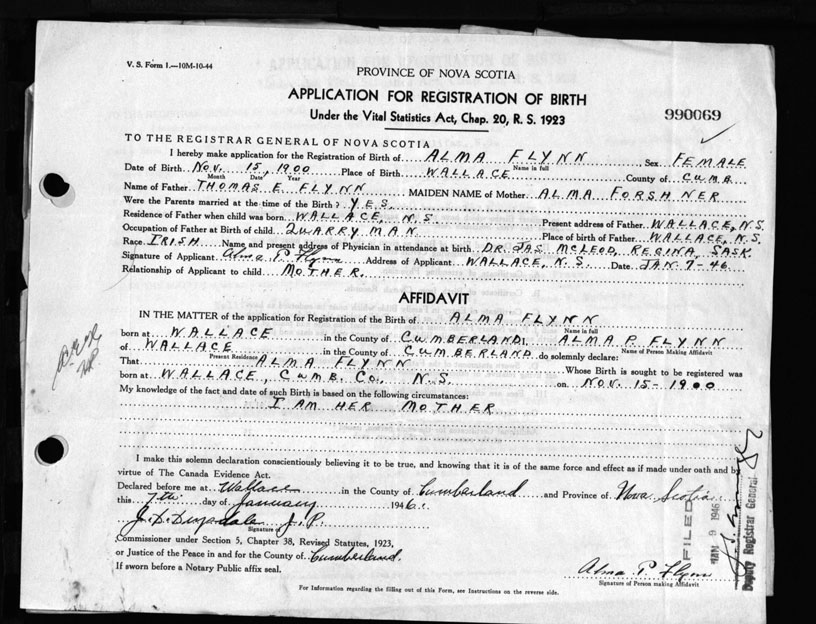 V. S. Form 1.—10M-10-44
PROVINCE OF NOVA SCOTIA
APPLICATION FOR REGISTRATION OF BIRTH
Under the Vital Statistics Act, Chap. 20, R. S. 1923
990069
TO THE REGISTRAR GENERAL OF NOVA SCOTIA
I hereby make application for the Registration of Birth of ALMA FLYNN Sex FEMALE
Name in full
Date of Birth NOV. 15, 1900 Place of Birth WALLACE County of CUMB.
Month Date Year
Name of Father THOMAS E FLYNN MAIDEN NAME of Mother ALMA FORSHNER
Were the Parents married at the time of the Birth? YES
Residence of Father when child was born WALLACE, N.S. Present address of Father WALLACE, N.S.
Occupation of Father at Birth of child QUARRYMAN Place of birth of Father WALLACE, N.S.
Race IRISH Name and present address of Physician in attendance at birth DR. JAS MCLEOD, REGINA, SASK
Signature of Applicant Alma P. Flynn Address of Applicant WALLACE, N.S. Date JAN. 7-46
Relationship of Applicant to child MOTHER.
AFFIDAVIT
IN THE MATTER of the application for Registration of the Birth of ALMA FLYNN
Name in full
born at WALLACE in the County of CUMBERLAND I, ALMA P. FLYNN
Name of Person Making Affidavit
of WALLACE in the County of CUMBERLAND do solemnly declare:
Present Residence
That ALMA FLYNN Whose Birth is sought to be registered was
born at WALLACE, CUMB. CO., N.S. on NOV. 15-1900
My knowledge of the fact and date of such Birth is based on the following circumstances:
I AM HER MOTHER
I make this solemn declaration conscientiously believing it to be true, and knowing that it is of the same force and effect as if made under oath and by
virtue of The Canada Evidence Act.
Declared before me at Wallace in the County of Cumberland and Province of Nova Scotia
this 7th day of January 1946.
J.P.
Signature of
Commissioner under Section 5, Chapter 38, Revised Statutes, 1923,
or Justice of the Peace in and for the County of Cumberland.
If sworn before a Notary Public affix seal.
Alma P. Flynn
Signature of Person making Affidavit
For Information regarding the filling out of this Form, see Instructions on the reverse side.
FILED
JAN 9 1946
Deputy Registrar General